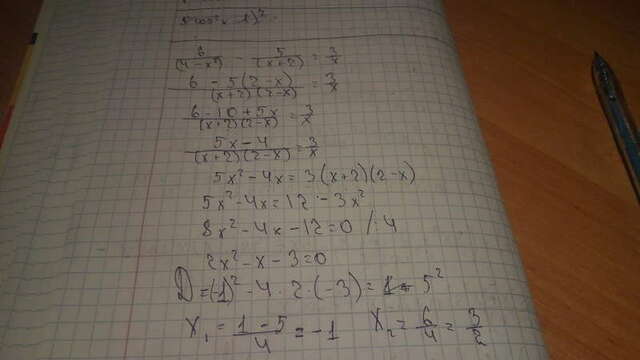 6/(4-x²) - 5/(x+2) = 3/x
(6 - 5(2-x))/((x+2)(2-x)) = 3/x
(6-10+5x)/((x+2)(2-x)) = 3/x
(5x-4)/((x+2)(2-x)) = 3/x
5x²-4x=3(x+2)(2-x)
5x²-4x=12-3x²
8x²-4x-12=0 /:4
2x²-x-3=0
D=(-1)²-4·2·(-3)= 5²
x₁=(1-5)/4=-1 x₂=6/4=3/2